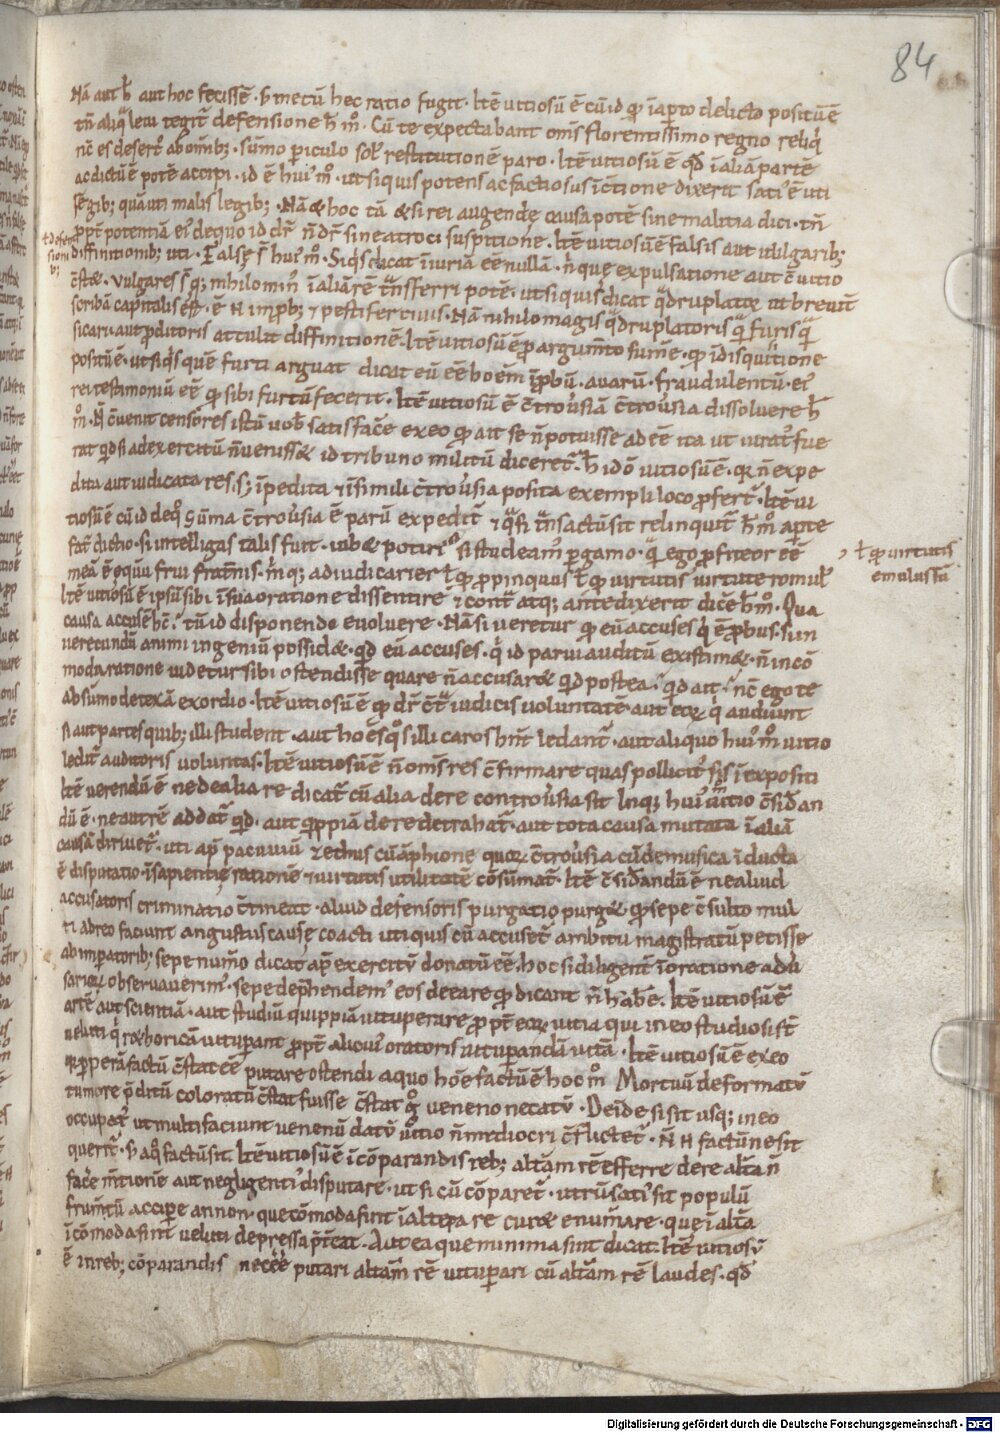 84
Nā aut h̄ aut hoc fecissē · s̄ metū hec ratio fugit · Itē uitiosū ē cū id qđ ī apto delicto positū ē
tn̄ aliqͣ leui tegit̄ defensione h̄ m̊ · Cū te expectabant om̄s florentissimo regno reliqi
nc̄ es desert᾽ ab omībꝫ · sūmo piculo sol᾽ restitutionē paro · Itē uitiosū ē qđ ī aliā partē
ac dictū ē potē accipi · id ē hui᾽ m̊ · ut si quis potens ac factiosus ī c̄tione dixerit sati᾽ ē uti
regibꝫ quā uti malis legibꝫ · Nā & hoc tā & si rei augendę causa potē sine malitia dici · tn̄
ppt̄ potentiā ei᾽ de quo id dr̄ n̄ dr̄ sine atroci suspitione · Itē uitiosū ē falsis aut uulgaribꝫ
diffinitionibꝫ uti · Falsę s̄ hui᾽ m̊ · Siqͥs dicat iniuriā eē nullā · n̄ quę expulsatione aut c̄uitio
c̄stat · uulgares s̄ qͥꝫ nihilomin᾽ ī aliā rē tn̄sferri potē · ut si quis dicat qͣdruplatoꝝ ut breuit̄
scribā capitalis est · ē n̄ inpbꝫ ⁊ pestifer ciuis · Nā nihilo magis qͣdruplatoris qͣ furis qͣ
sicari · aut pditoris attulit diffinitionē · Itē uitiosū ē p argumto sumē · qđ ī disquisitione
positū ē · ut siqͥs quē furti arguat dicat eū eē hoēm īpbū · auarū · fraudulentū · ei᾽
rei testimoniū eē qđ sibi furtū fecerit · Itē uitiosū ē c̄trou̓siā c̄trou̓sia dissoluere h̄
m̊ · N̄ c̄uenit censores istū uob᾽ satisfacē ex eo qđ ait se n̄ potuisse adeē ita ut iurat᾽ fue
rat · qđ si ad exercitū n̄ ueniss& id tribuno militū diceret̄ · h̄ idō uitiosū ē · qr n̄ expe
dita aut iudicata res · sꝫ īpedita ⁊ ī simili c̄trou̓sia posita exempli loco pfert̄ · Itē ui
tiosū ē cū id de qͦ sūma c̄trou̓sia ē parū expedit̄ ⁊ qͣsi tn̄sactū sit relinquit̄ h̄ m̊ apte
fat̄ dictio · si intelligas talis fuit · urb& potiri si studeam᾽ pgamo · qͣ ego pfiteor eē
meā ē equū frui fraternis · m̄qꝫ adiudicarier ł qđ ppinquus ł qđ uirtutis uirtute romul᾽
Itē uitiosū ē ipsū sibi ī sua oratione dissentire ⁊ cont̄ atqꝫ antedixerit dicē h̄ m̊ · Qua
causa accusē hc̄ · tū id disponendo euoluere · Nā si ueretur qđ eū accuses qͥ ē pbus · si in
uerecundū animi ingeniū possid& · qđ eū accuses · qͥ id parui auditū existim& · n̄ incō
moda ratione uidetur sibi ostendisse quare n̄ accusar& · qđ postea · qđ ait · nc̄ ego te
ab sūmo detexā exordio · Itē uitiosū ē qđ dr̄ c̄t̄ iudicis uoluntatē · aut eoꝝ qͥ audiunt
si aut partes quibꝫ illi student · aut hoēs qͦs illi caros hn̄t ledant̄ · aut aliquo hui᾽ m̊ uitio
ledit̄ auditoris uoluntas · Itē uitiosū ē n̄ om̄s res c̄firmare quas pollicit᾽ sis ī expositi
Itē uerendū ē ne de alia re dicat̄ cū alia de re controu̓sia sit Inqꝫ hui᾽ m̊ uitio c̄sidan
dū ē · ne aut rē addat̄ qđ · aut qppiā de re detrahat̄ · aut tota causa mutata ī aliā
causā diriuet̄ · uti ap pacuuiū ⁊ ethus cū āphione quoꝝ c̄trou̓sia cū de musica īducta
ē disputatio · ī sapientię rationē ⁊ uirtutis utilitatē cōsumat̄ · Itē c̄sidandū ē ne aliud
accusatoris criminatio c̄tineat · aliud defensoris purgatio purg& · qđ sepe c̄sulto mul
ti ab reo faciunt angustus causę coacti uti quis cū accuset̄ ambitu magistratū petisse
ab inpatoribꝫ sepe num̄o dicat ap exercitū donatū eē · hoc si diligent̄ ī oratione adu
sarioꝝ obseruauerim᾽ · sepe dephendem᾽ eos de ea re qđ dicant n̄ habē · Itē uitiosū ē
artē aut scientiā · aut studiū quippiā uituperare ppt̄ eoꝝ uitia qui in eo studio sist̄
ueluti qͥ r&horicā uitupant ppt̄ alicui᾽ oratoris uitupandā uitā · Itē uitiosū ē ex eo
qđ pperā factū c̄stat eē putare ostendi a quo hoē factū ē hoc m̊ Mortuū deformatū
tumore pditū coloratū c̄stat fuisse c̄stat g̊ ueneno necatū · Deīde si sit usqꝫ in eo
occupat᾽ ut multi faciunt uenenū datū uitio n̄ mediocri c̄flictet̄ · N̄ n̄ factū ne sit
querit̄ · s̄ a qͦ factū sit · Itē uitiosū ē ī cōparandis rebꝫ altām rē efferre de re alta n̄
facē mtionē aut negligenti᾽ disputare · ut si cū cōparet̄ · utrū sati᾽ sit populū
frumtū accipe an non · que cōmoda sint ī altepa re cur& enumare · que ī alta
īcōmoda sint ueluti depressa p̄t̄eat · Aut ea que minima sunt dicat · Itē uitiosū
ē in rebꝫ cōparandis necēē putari altam rē uitupari cū altam rē laudes · qđ
ł defen
sioni
bꝫ
ł qđ uirtutis
emulus sū
Digitalisierung gefördert durch die Deutsche Forschungsgemeinschaft - DFG